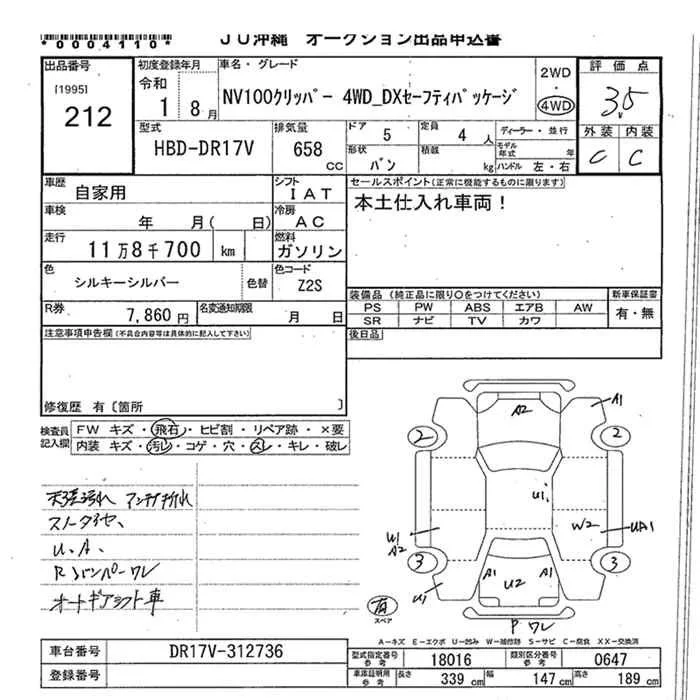 *0004110*
JU沖縄 オークション出品申込書
出品番号
[1995]
212
初度登録年月
令和
1 8月
車名・グレード
NV100クリッパー 4WD_DXセーフティパッケージ
2WD
4WD
評価点
3.5
外装 内装
C C
型式
HBD-DR17V
排気量
658
CC
ドア 5
定員 4 人
形状 バン
積載 kg
ディーラー・並行
モデル年式 年
ハンドル 左・右
車歴 自家用
シフト IAT
車検 年 月( 日)
冷房 AC
走行 11万8千700 km
燃料 ガソリン
色 シルキーシルバー
色替
色コード Z2S
R券 7,860円
名変通知期限 月 日
セールスポイント(正常に機能するものに限ります)
本土仕入れ車両!
装備品(純正品に限り○をつけてください)
新車保証書
PS PW ABS エアB AW
SR ナビ TV カワ
有・無
後日品
注意事項申告欄(不具合内容等は具体的に記入して下さい)
修復歴 有〔箇所 〕
検査員記入欄
FW キズ・飛石・ヒビ割・リペア跡・×要
内装 キズ・汚レ・コゲ・穴・スレ・キレ・破レ
天張汚れ アンテナ折れ
スノータイヤ、
U、A、
Rバンパーワレ
オートギアシフト車
A2
A1
2
2
U1
U1
A2
W2
UA1
3
3
A1
U2
A1
U1
P ワレ
有
スペア
A-キズ E-エクボ U-凹み W-補修跡 S-サビ C-腐食 XX-交換済
車台番号 DR17V-312736
登録番号
型式指定番号 参考 18016
類別区分番号 参考 0647
車庫証明用 参考 長さ 339 cm 幅 147 cm 高さ 189 cm